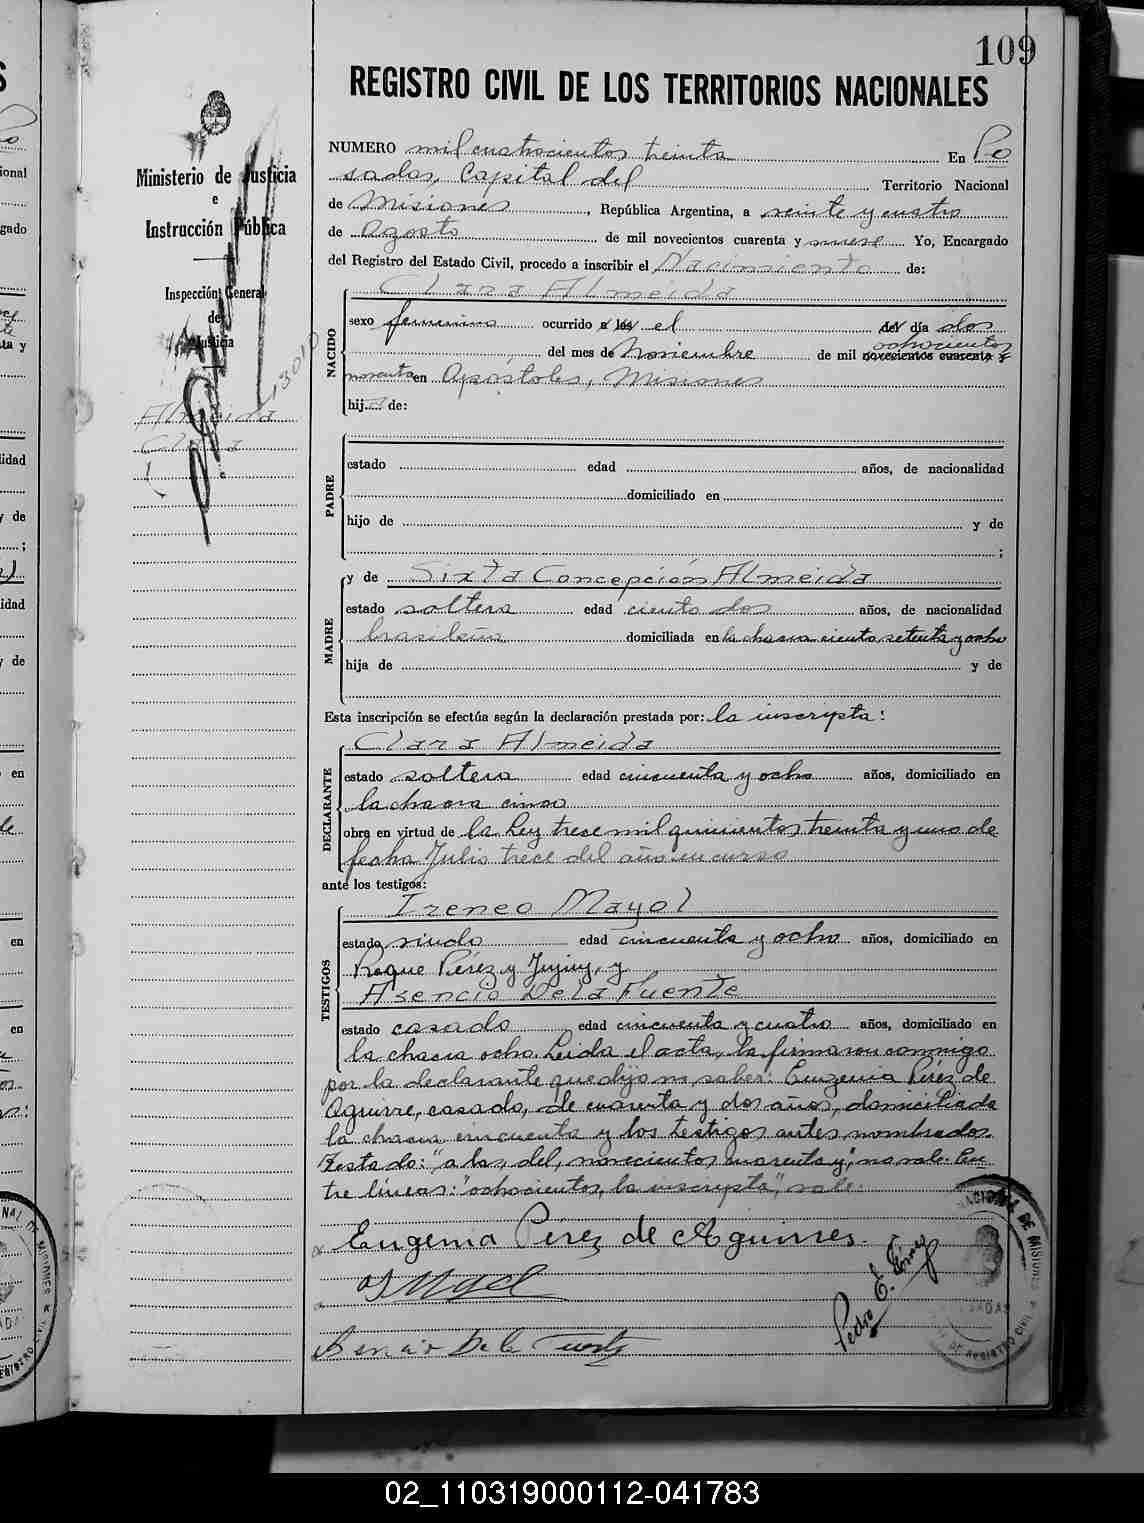 109
REGISTRO CIVIL DE LOS TERRITORIOS NACIONALES
Ministerio de Justicia
e
Instrucción Pública
Inspección General
de
Justicia
Almeida
Clara
NUMERO mil cuatrocientos treinta En Po
sadas, Capital del Territorio Nacional
de Misiones, República Argentina, a veinte y cuatro
de Agosto de mil novecientos cuarenta y nueve Yo, Encargado
del Registro del Estado Civil, procedo a inscribir el Nacimiento de:
Clara Almeida
NACIDO
sexo femenino ocurrido a las el del día dos
ochocientos
del mes de Noviembre de mil novecientos cuarenta y
noventa en Apóstoles, Misiones
hija de:
PADRE
estado edad años, de nacionalidad
domiciliado en
hijo de y de
;
MADRE
y de Sixta Concepción Almeida
estado soltera edad ciento dos años, de nacionalidad
brasileña domiciliada en la chacra ciento setenta y ocho
hija de y de
Esta inscripción se efectúa según la declaración prestada por: la inscripta:
DECLARANTE
Clara Almeida
estado soltera edad cincuenta y ocho años, domiciliado en
la chacra cinco
obra en virtud de la Ley trece mil quinientos treinta y uno de
fecha Julio trece del año en curso
ante los testigos:
TESTIGOS
Ireneo Mayol
estado viudo edad cincuenta y ocho años, domiciliado en
Roque Pérez y Jujuy, y
Asencio De la Fuente
estado casado edad cincuenta y cuatro años, domiciliado en
la chacra ocho. Leida el acta, la firmaron conmigo
por la declarante que dijo no saber: Eugenia Pérez de
Aguirre, casada, de cuarenta y dos años, domiciliada
la chacra cincuenta y los testigos antes nombrados.
Testado: "a las, del, novecientos cuarenta y", no vale. En
tre líneas: "ochocientos, la inscripta", vale.
Eugenia Pérez de Aguirres.
Pedro E.
02_110319000112-041783